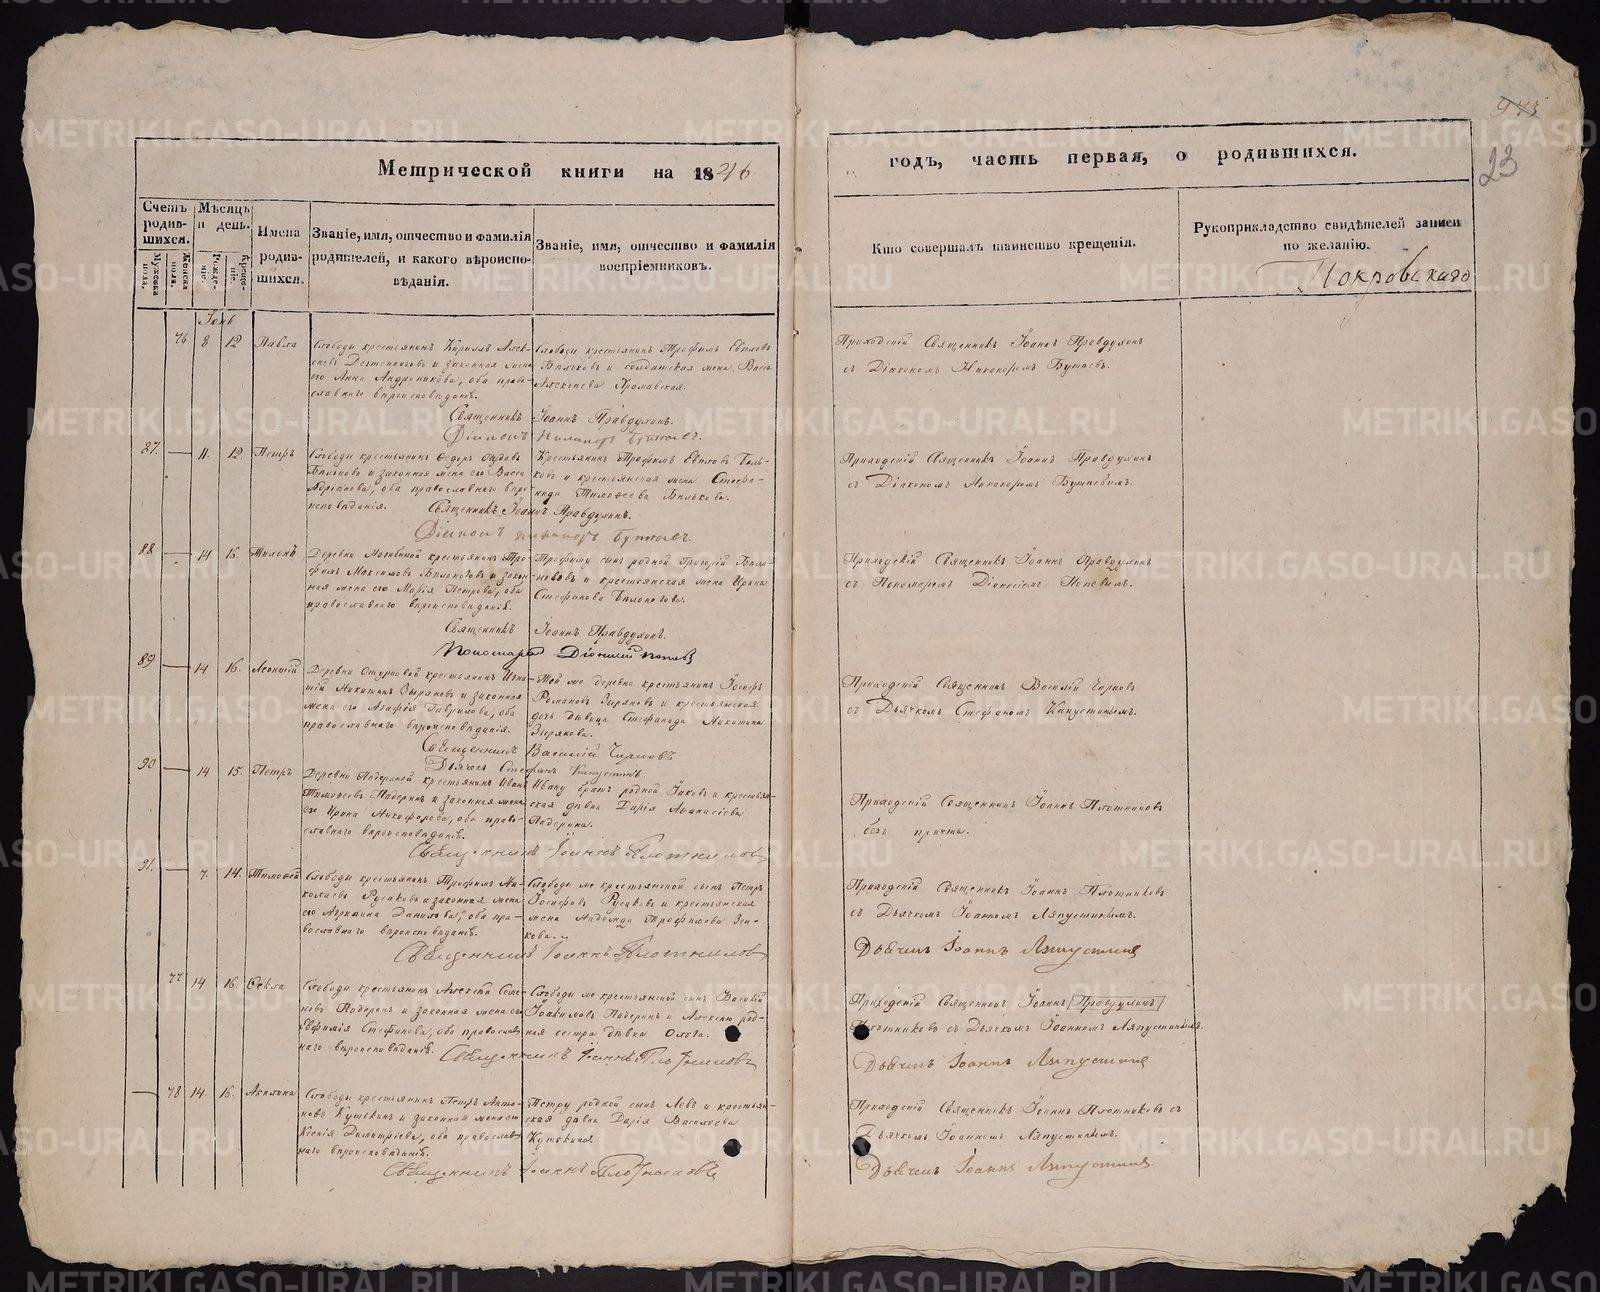 943
23
Метрической книги на 1846
годъ, часть первая, о родившихся.
Счетъ родившихся.
Мужеска пола.
Женска пола.
Мѣсяцъ и день.
Рожденіе.
Крещеніе.
Имена родившихся.
Званіе, имя, отчество и фамилія родителей, и какого вѣроисповѣданія.
Званіе, имя, отчество и фамилія воспріемниковъ.
Кто совершалъ таинство крещенія.
Рукоприкладство свидѣтелей записи по желанію.
Покровскаго
Іюнь
76 8 12 Павла
Слободы крестьянинъ Кириллъ Алек-
и законная жена
его Анна Андроникова, оба право-
славнаго вѣроисповѣданія.
Слободы крестьянинъ Трофимъ
и солдатская жена Васса
Приходскій Священникъ Іоаннъ Правдухинъ
съ Діакономъ Никаноромъ
Священникъ Іоаннъ Правдухинъ.
Діаконъ Никаноръ
87. — 11. 12. Петръ
Слободы крестьянинъ Ѳедоръ
и законная жена его Васса
Адріанова, оба православнаго вѣро-
исповѣданія.
Крестьянинъ Трофимъ
и крестьянская жена Стефа-
нида Тимоѳеева
Приходскій Священникъ Іоаннъ Правдухинъ
съ Діакономъ Никаноромъ
Священникъ Іоаннъ Правдухинъ.
Діаконъ Никаноръ
88 — 14 16. Тихонъ
Деревни крестьянинъ Тро-
фимъ Максимовъ и закон-
ная жена его Марія Петрова, оба
православнаго вѣроисповѣданія.
Трофиму сынъ родной Григорій
и крестьянская жена Ирина
Стефанова
Приходскій Священникъ Іоаннъ Правдухинъ
съ Пономаремъ Діонисіемъ Поповымъ.
Священникъ Іоаннъ Правдухинъ.
Пономарь Діонисій Поповъ
89 — 14 16. Леонтій
Деревни крестьянинъ Игна-
тій Никитинъ Зыряновъ и законная
жена его Агафія Гаврилова, оба
православнаго вѣроисповѣданія.
Той же деревни крестьянинъ Іосифъ
Романовъ Зыряновъ и крестьянская
дочь дѣвица Стефанида Никитина
Зырянова.
Приходскій Священникъ Василій Чирковъ
съ Дьячкомъ Стефаномъ Капустинымъ.
Священникъ Василій Чирковъ
Дьячекъ Стефанъ Капустинъ.
90 — 14 15. Петръ
Деревни Падериной крестьянинъ Иванъ
Тимоѳеевъ Падеринъ и законная жена
его Ирина Никифорова, оба право-
славнаго вѣроисповѣданія.
Ивану братъ родной Іаковъ и крестьян-
ская дѣвка Дарія Аѳанасіева
Падерина.
Приходскій Священникъ Іоаннъ Плотниковъ
безъ причта.
Священникъ Іоаннъ Плотниковъ
91. — 7. 14. Тимоѳей
Слободы крестьянинъ Трофимъ Ни-
колаевъ Русаковъ и законная жена
его Агрипина Данилова, оба пра-
вославнаго вѣроисповѣданія.
Слободы же крестьянской сынъ Петръ
Іосифовъ Русаковъ и крестьянская
жена Надежда Трофимова Зен-
кова.
Приходскій Священникъ Іоаннъ Плотниковъ
съ Дьячкомъ Іоанномъ Ляпустинымъ.
Священникъ Іоаннъ Плотниковъ
Дьячекъ Іоаннъ Ляпустинъ
77 14 16. Ѳекла
Слободы крестьянинъ Алексѣй Семе-
новъ Падеринъ и законная жена его
Евфимія Стефанова, оба православ-
наго вѣроисповѣданія.
Слободы же крестьянской сынъ Василій
Іоакимовъ Падеринъ и Алексѣю род-
ная сестра дѣвка Ольга.
Приходскій Священникъ Іоаннъ Правдухинъ
Плотниковъ съ Дьячкомъ Іоанномъ Ляпустинымъ.
Священникъ Іоаннъ Плотниковъ
Дьячекъ Іоаннъ Ляпустинъ
— 78 14 16. Акилина
Слободы крестьянинъ Петръ Анто-
новъ Кутькинъ и законная жена его
Ксенія Димитріева, оба православ-
наго вѣроисповѣданія.
Петру родной сынъ Левъ и крестьян-
ская дѣвка Дарія Васильева
Кутькина.
Приходскій Священникъ Іоаннъ Плотниковъ съ
Дьячкомъ Іоанномъ Ляпустинымъ.
Священникъ Іоаннъ Плотниковъ
Дьячекъ Іоаннъ Ляпустинъ
METRIKI.GASO-URAL.RU